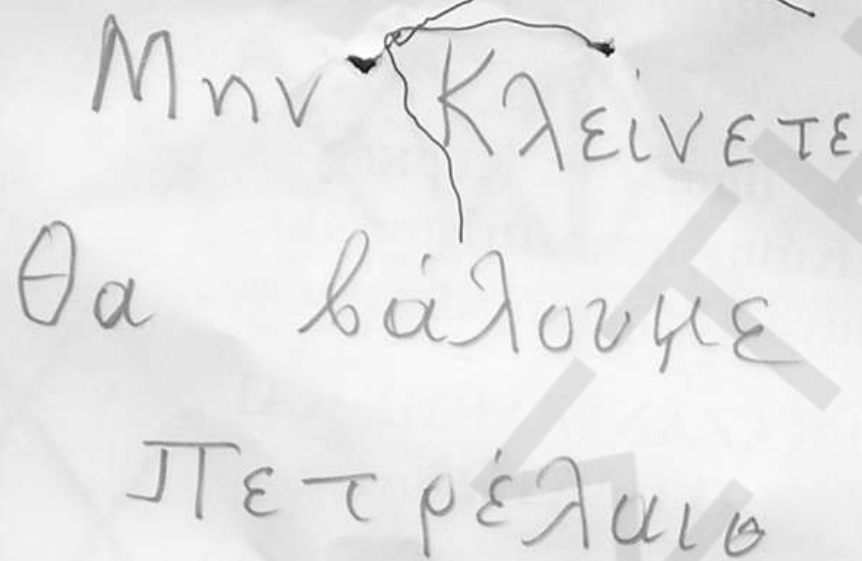 Μην Κλείνετε
Θα βάλουμε
Πετρέλαιο